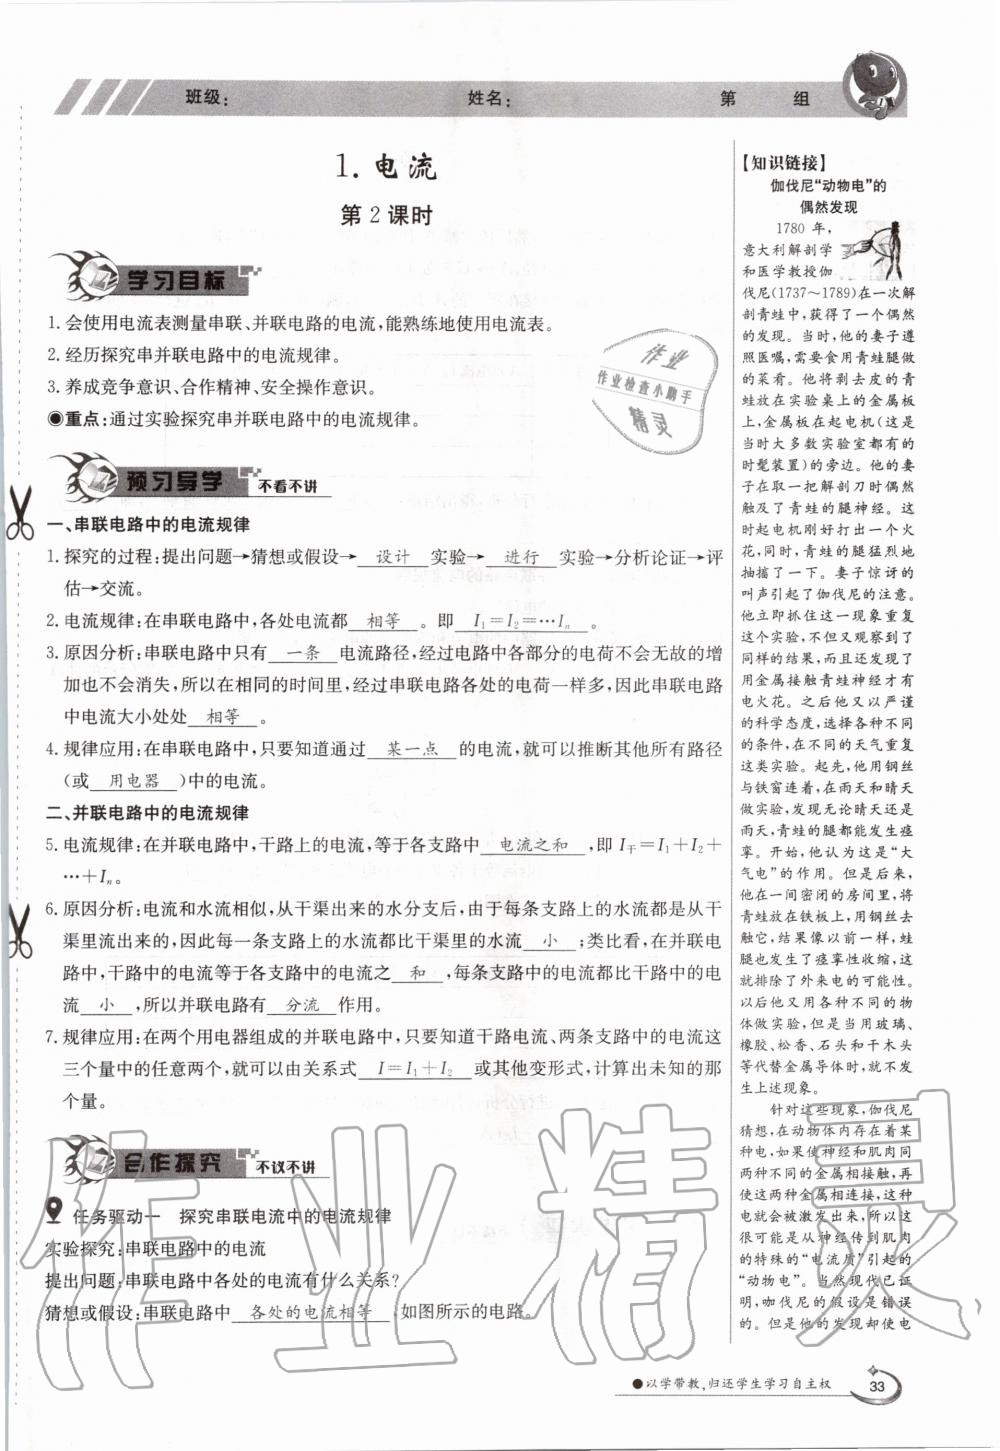 班级:
姓名:
第 组
1. 电流
第2课时
学习目标
1. 会使用电流表测量串联、并联电路的电流,能熟练地使用电流表。
2. 经历探究串并联电路中的电流规律。
3. 养成竞争意识、合作精神、安全操作意识。
◉重点:通过实验探究串并联电路中的电流规律。
预习导学 不看不讲
一、串联电路中的电流规律
1. 探究的过程:提出问题→猜想或假设→ 设计 实验→ 进行 实验→分析论证→评
估→交流。
2. 电流规律:在串联电路中,各处电流都 相等 。即 I₁=I₂=…Iₙ 。
3. 原因分析:串联电路中只有 一条 电流路径,经过电路中各部分的电荷不会无故的增
加也不会消失,所以在相同的时间里,经过串联电路各处的电荷一样多,因此串联电路
中电流大小处处 相等 。
4. 规律应用:在串联电路中,只要知道通过 某一点 的电流,就可以推断其他所有路径
(或 用电器 )中的电流。
二、并联电路中的电流规律
5. 电流规律:在并联电路中,干路上的电流,等于各支路中 电流之和 ,即 I干=I₁+I₂+
…+Iₙ。
6. 原因分析:电流和水流相似,从干渠出来的水分支后,由于每条支路上的水流都是从干
渠里流出来的,因此每一条支路上的水流都比干渠里的水流 小 ;类比看,在并联电
路中,干路中的电流等于各支路中的电流之 和 ,每条支路中的电流都比干路中的电
流 小 ,所以并联电路有 分流 作用。
7. 规律应用:在两个用电器组成的并联电路中,只要知道干路电流、两条支路中的电流这
三个量中的任意两个,就可以由关系式 I=I₁+I₂ 或其他变形式,计算出未知的那
个量。
合作探究 不议不讲
任务驱动一 探究串联电流中的电流规律
实验探究:串联电路中的电流
提出问题:串联电路中各处的电流有什么关系?
猜想或假设:串联电路中 各处的电流相等 ,如图所示的电路。
【知识链接】
伽伐尼“动物电”的
偶然发现
1780 年,
意大利解剖学
和医学教授伽
伐尼(1737~1789)在一次解
剖青蛙中,获得了一个偶然
的发现。当时,他的妻子遵
照医嘱,需要食用青蛙腿做
的菜肴。他将剥去皮的青
蛙放在实验桌上的金属板
上,金属板在起电机(这是
当时大多数实验室都有的
时髦装置)的旁边。他的妻
子在取一把解剖刀时偶然
触及了青蛙的腿神经。这
时起电机刚好打出一个火
花,同时,青蛙的腿猛烈地
抽搐了一下。妻子惊讶的
叫声引起了伽伐尼的注意。
他立即抓住这一现象重复
这个实验,不但又观察到了
同样的结果,而且还发现了
用金属接触青蛙神经才有
电火花。之后他又以严谨
的科学态度,选择各种不同
的条件,在不同的天气重复
这类实验。起先,他用铜丝
与铁窗连着,在雨天和晴天
做实验,发现无论晴天还是
雨天,青蛙的腿都能发生痉
挛。开始,他认为这是“大
气电”的作用。但是后来,
他在一间密闭的房间里,将
青蛙放在铁板上,用铜丝去
触它,结果像以前一样,蛙
腿也发生了痉挛性收缩,这
就排除了外来电的可能性。
以后他又用各种不同的物
体做实验,但是当用玻璃、
橡胶、松香、石头和干木头
等代替金属导体时,就不发
生上述现象。
针对这些现象,伽伐尼
猜想,在动物体内存在着某
种电,如果使神经和肌肉同
两种不同的金属相接触,再
使这两种金属相连接,这种
电就会被激发出来,所以这
很可能是从神经传到肌肉
的特殊的“电流质”引起的
“动物电”。当然现代已证
明,咖伐尼的假设是错误
的。但是他的发现却使电
●以学带教,归还学生学习自主权
33
作业
作业检查小助手
精灵
作业精灵